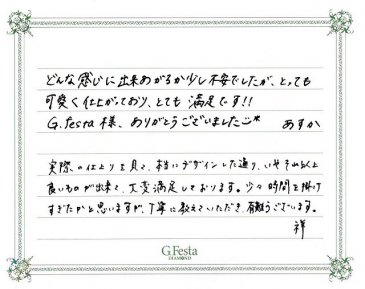 どんな感じに出来あがるか少し不安でしたが、とっても
可愛く仕上がっており、とても満足です!!
G.festa様、ありがとうございました
あすか
実際の仕上りを見て、本当にデザインした通り、いやそれ以上
良いものが出来て、大変満足しております。少々時間を掛け
すぎたかと思いますが、丁寧に教えていただき、有難うございます。
祥
G.Festa
DIAMOND